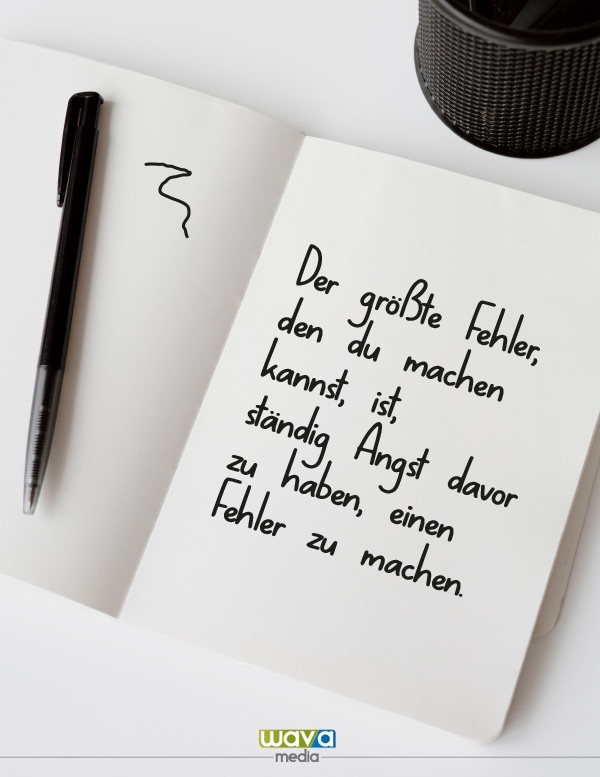 Der größte Fehler,
den du machen
kannst, ist,
ständig Angst davor
zu haben, einen
Fehler zu machen.
wava
media